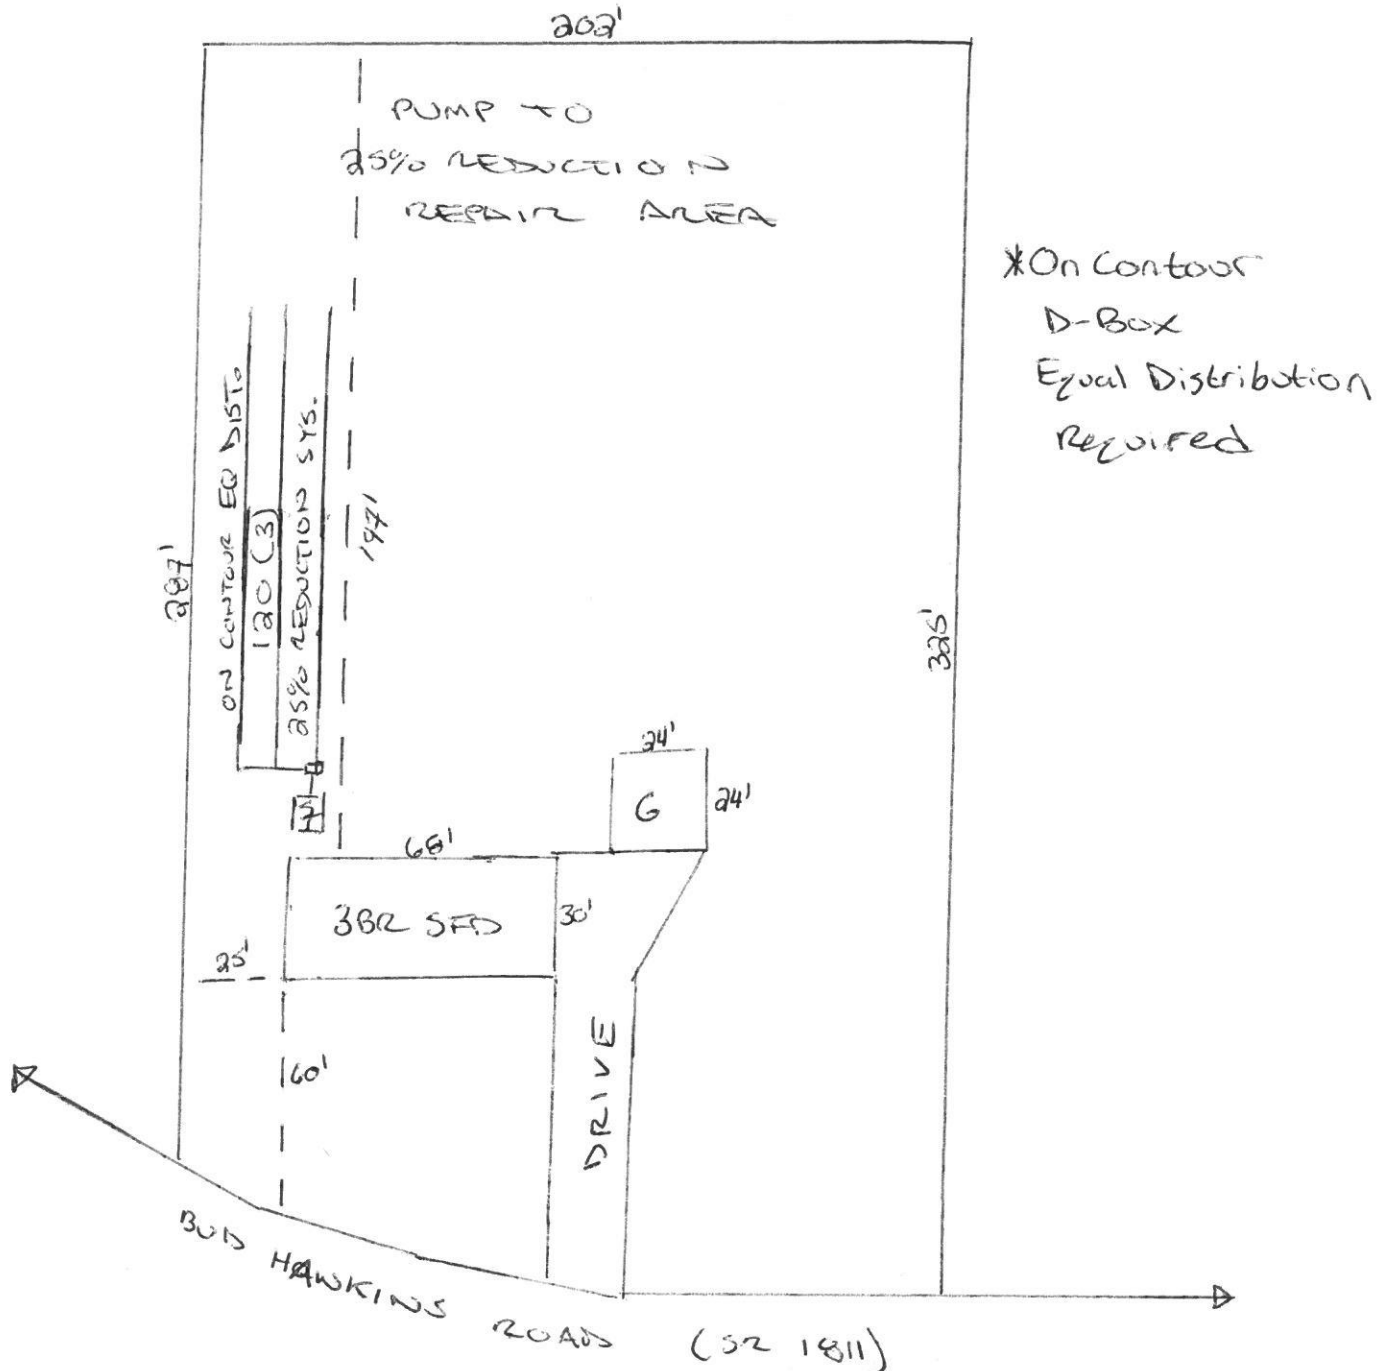 202'
PUMP TO
25% REDUCTION
REPAIR AREA
*On Contour
D-Box
Equal Distribution
Required
ON CONTOUR EQ DIST.
120 (3)
25% REDUCTION SYS.
197'
287'
325'
24'
G
24'
ST
68'
3BR SFD
30'
25'
60'
DRIVE
BUD HAWKINS ROAD (SR 1811)